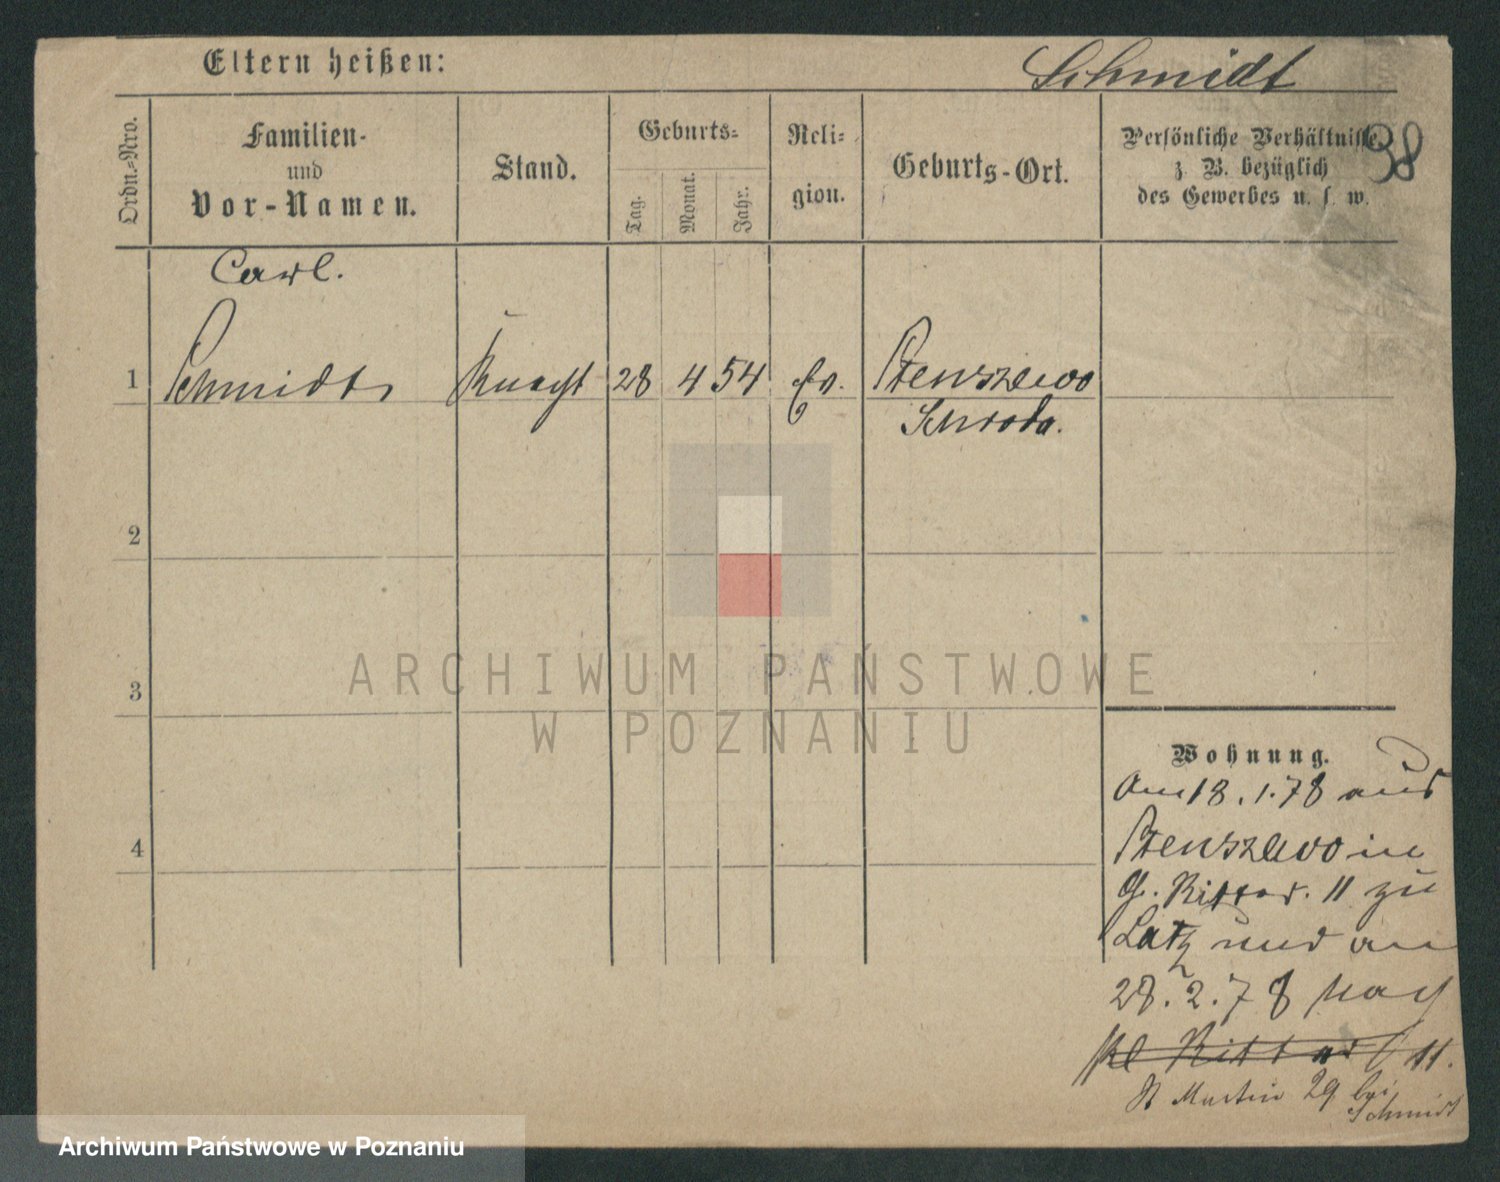 Eltern heißen:
Schmidt
Ordn.=Nro.
Familien-
und
Vor-Namen.
Stand.
Geburts=
Tag.
Monat.
Jahr.
Reli=
gion.
Geburts-Ort.
Persönliche Verhältnisse
z. B. bezüglich
des Gewerbes u. s. w.
98
Carl.
1 Schmidt, Knecht 28 4 54 Ev. Stenszewo
Schroda.
2
3
4
Wohnung.
Am 18.1.78 aus
Stenszewo in
G. Ritterst. 11 zu
Latz und am
28.2.78 nach
Kl Ritterst 11.
St Martin 29 bei
Schmidt
ARCHIWUM PAŃSTWOWE
W POZNANIU
Archiwum Państwowe w Poznaniu